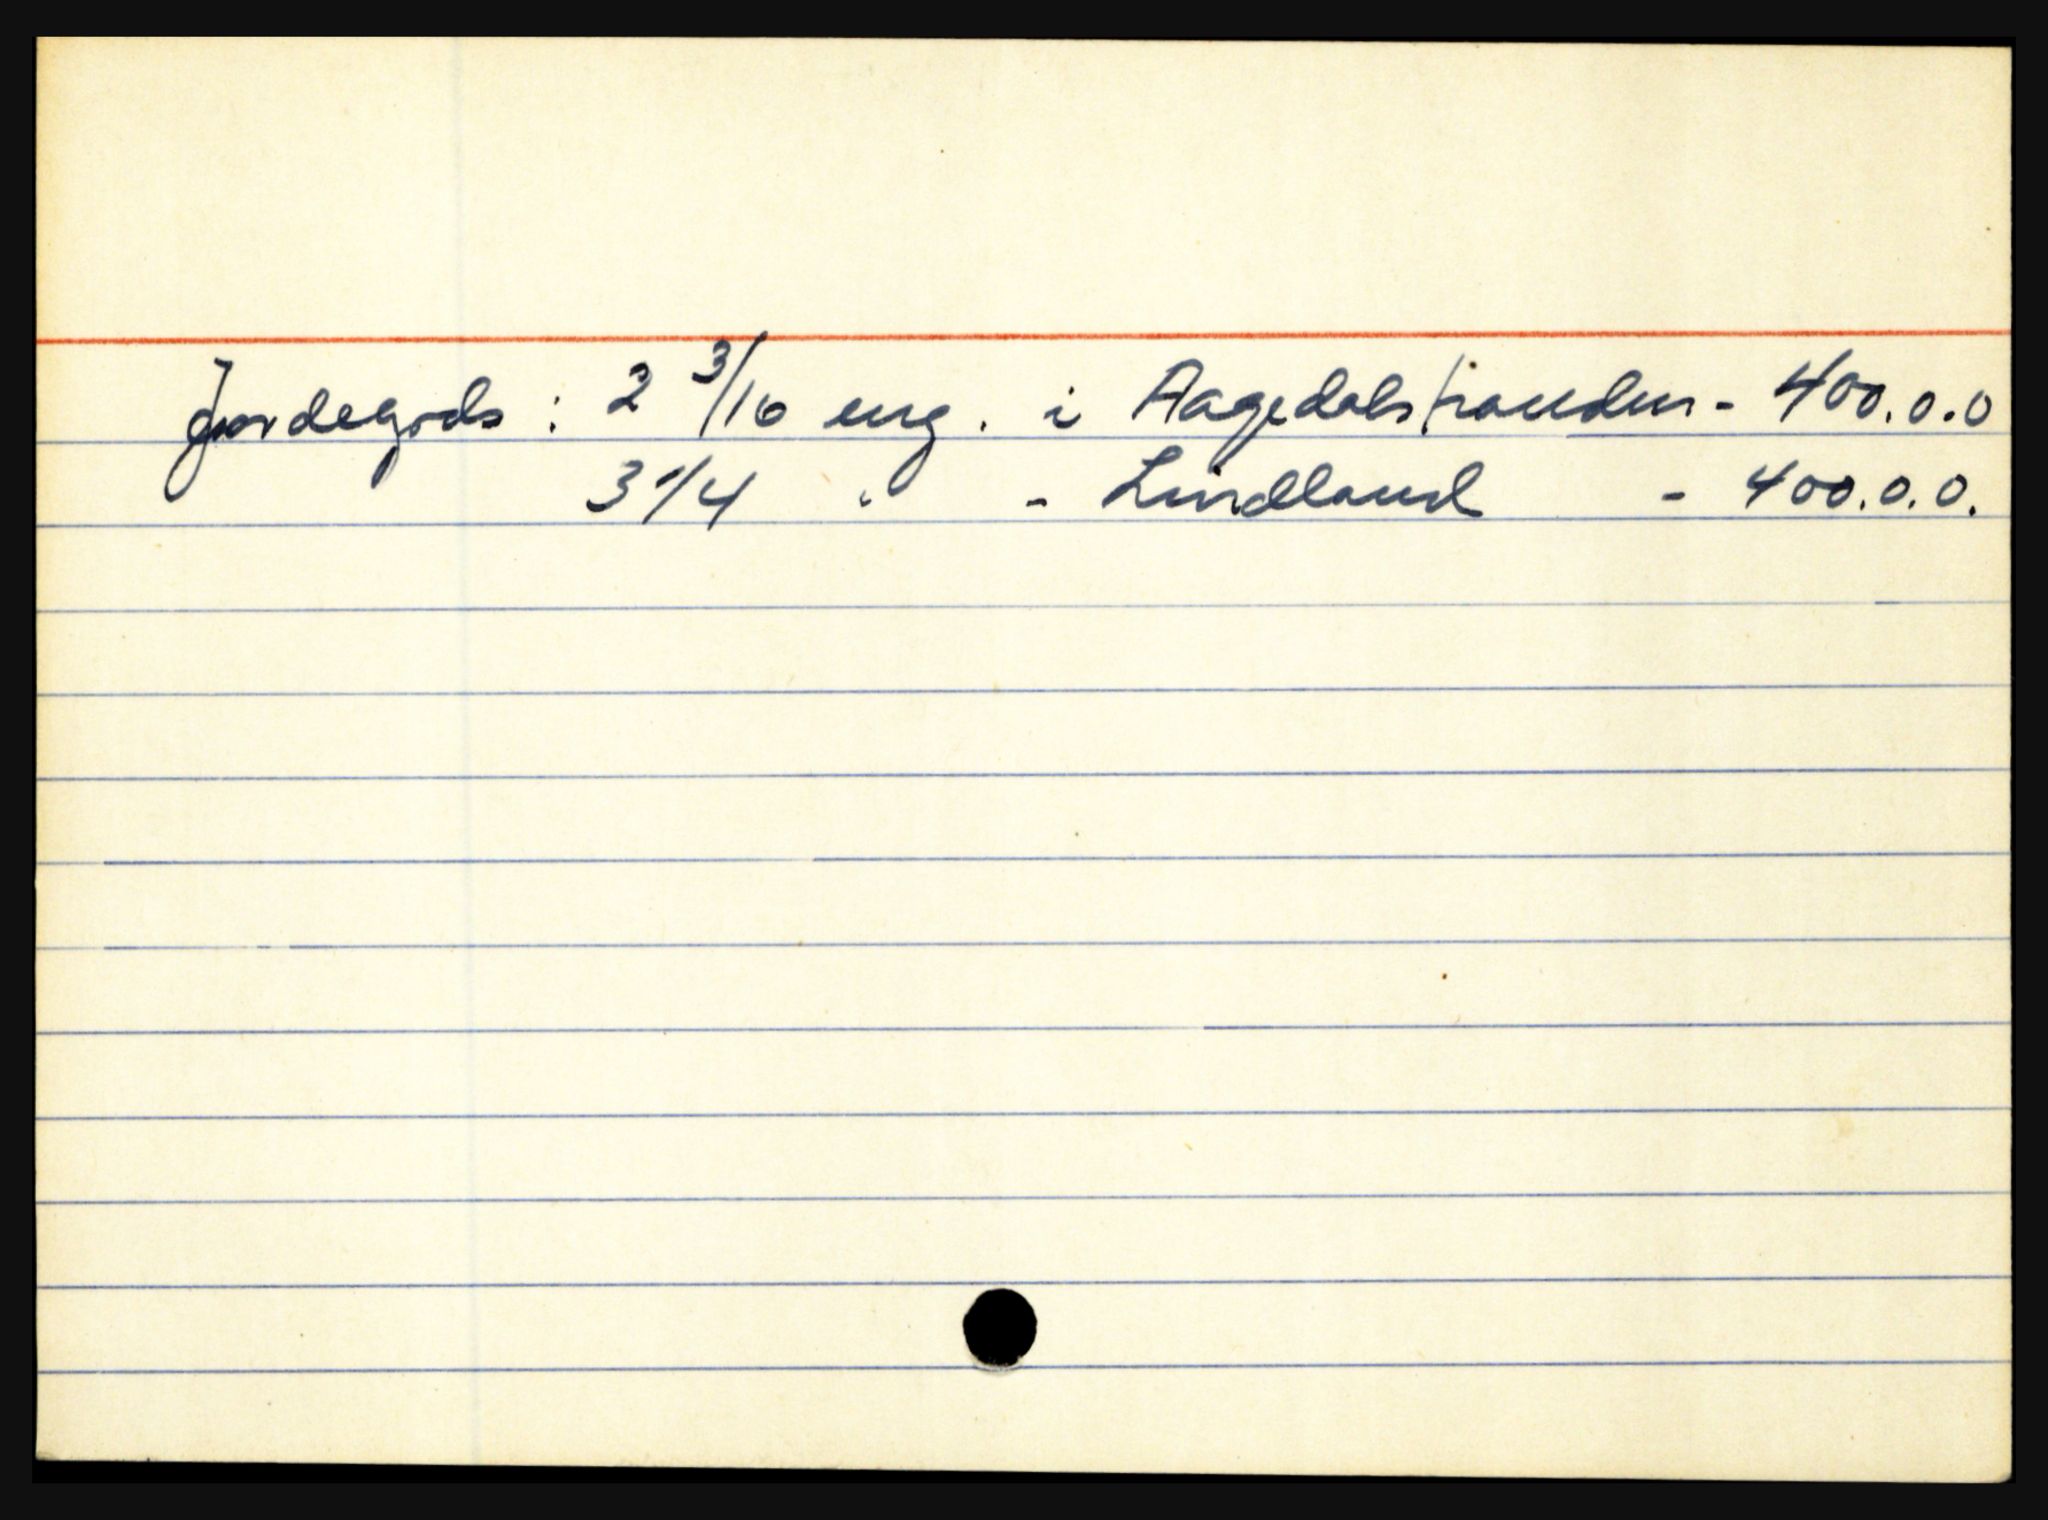 Jordegods: 2 3/16 eng. i Aagedalstranden - 400.0.0
3 1/4 " - Lindland - 400.0.0.